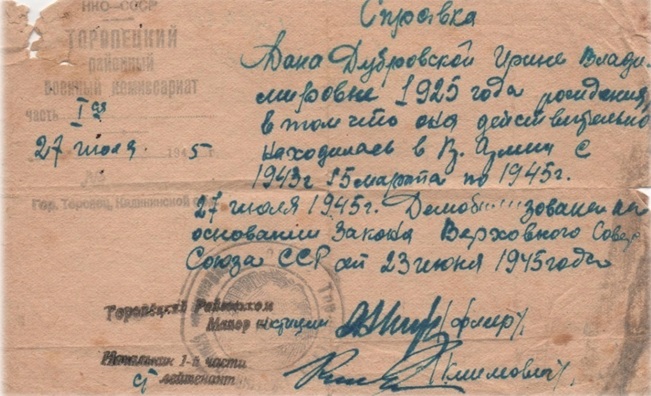 НКО-СССР
ТОРОПЕЦКИЙ
районный
военный комиссариат
часть I ая
27 июля 1945
Гор. Торопец, Калининской
Справка
Дана Дубровской Ирине Влади
мировне 1925 года рождения,
в том что она действительно
находилась в К. Армии с
1943г 15 марта по 1945г.
27 июля 1945г. Демобилизована на
основании Закона Верховного Сове
Союза ССР от 23 июня 1945 года
Торопецкий Райвоенком
Майор юстиции
Начальник 1-й части
ст лейтенант (Климович)